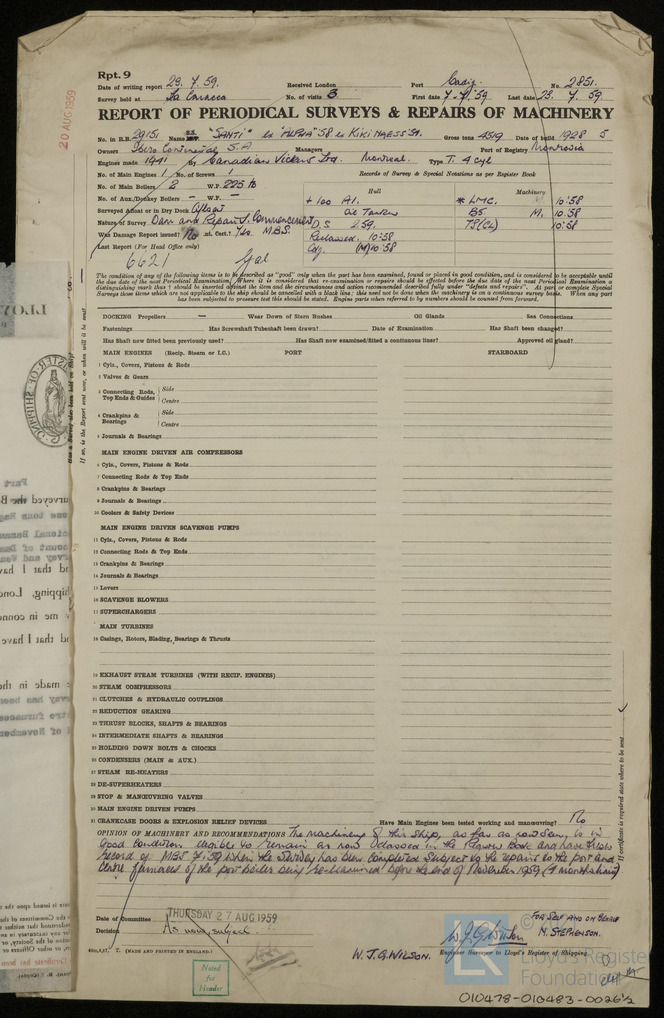 Rpt. 9
Date of writing report 29. 7. 59. Received London Port Cadiz. No. 2851.
Survey held at La Carraca No. of visits 3 First date 7-7-59 Last date 23. 7. 59
REPORT OF PERIODICAL SURVEYS & REPAIRS OF MACHINERY
20 AUG 1959
No. in R.B. 29151 Name S.S. "SANTI" ex "ALPHA" 58 ex KIKI NAESS Gross tons 4519 Date of build 1928 5
Owners Ibero Continental S.A Managers Port of Registry Monrovia
Engines made 1941 by Canadian Vickers Ltd. Montreal. Type T. 4 cyl
No. of Main Engines 1 No. of Screws 1 Records of Survey & Special Notations as per Register Book
No. of Main Boilers 2 W.P. 225 lb Hull Machinery
No. of Aux./Donkey Boilers - W.P. - +100 A1. * LMC. 10:58
Surveyed Afloat or in Dry Dock Afloat Oil Tanker BS M. 10.58
Nature of Survey Dam and Repairs, Commencement D.S 2.59. TS(CL) 10:58
Was Damage Report issued? No Int. Cert.? Yes M.B.S. Reclassed. 10:58
Last Report (For Head Office only) Cdg. (M) 10:58
6621 Gal
The condition of any of the following items is to be described as "good" only when the part has been examined, found or placed in good condition, and is considered to be acceptable until
the due date of the next Periodical Examination. Where it is considered that re-examination or repairs should be effected before the due date of the next Periodical Examination a
distinguishing mark thus † should be inserted against the item and the circumstances and action recommended described fully under "defects and repairs". At part or complete Special
Surveys those items which are not applicable to the ship should be cancelled with a black line; this need not be done when the machinery is on a continuous survey basis. When any part
has been subjected to pressure test this should be stated. Engine parts when referred to by numbers should be counted from forward.
DOCKING Propellers - Wear Down of Stern Bushes Oil Glands Sea Connections
Fastenings Has Screwshaft Tubeshaft been drawn? Date of Examination Has Shaft been changed?
Has Shaft now fitted been previously used? Has Shaft now examined/fitted a continuous liner? Approved oil gland?
MAIN ENGINES (Recip. Steam or I.C.) PORT STARBOARD
1 Cyls., Covers, Pistons & Rods
2 Valves & Gears
3 Connecting Rods, Top Ends & Guides Side
Centre
4 Crankpins & Bearings Side
Centre
5 Journals & Bearings
MAIN ENGINE DRIVEN AIR COMPRESSORS
6 Cyls., Covers, Pistons & Rods
7 Connecting Rods & Top Ends
8 Crankpins & Bearings
9 Journals & Bearings
10 Coolers & Safety Devices
MAIN ENGINE DRIVEN SCAVENGE PUMPS
11 Cyls., Covers, Pistons & Rods
12 Connecting Rods & Top Ends
13 Crankpins & Bearings
14 Journals & Bearings
15 Levers
16 SCAVENGE BLOWERS
17 SUPERCHARGERS
MAIN TURBINES
18 Casings, Rotors, Blading, Bearings & Thrusts
19 EXHAUST STEAM TURBINES (WITH RECIP. ENGINES)
20 STEAM COMPRESSORS
21 CLUTCHES & HYDRAULIC COUPLINGS
22 REDUCTION GEARING
23 THRUST BLOCKS, SHAFTS & BEARINGS
24 INTERMEDIATE SHAFTS & BEARINGS
25 HOLDING DOWN BOLTS & CHOCKS
26 CONDENSERS (MAIN & AUX.)
27 STEAM RE-HEATERS
28 DE-SUPERHEATERS
29 STOP & MANŒUVRING VALVES
30 MAIN ENGINE DRIVEN PUMPS
31 CRANKCASE DOORS & EXPLOSION RELIEF DEVICES Have Main Engines been tested working and manœuvring? No
OPINION OF MACHINERY AND RECOMMENDATIONS The machinery of this ship, as far as now seen, is in
good condition eligible to remain as now classed in the Register Book and have fresh
record of MBS 7.59 when the survey has been completed subject to the repairs to the port and
centre furnaces of the port boiler being re-examined before the end of November 1959 (4 months hence)
If certificate is required state where to be sent
Date of Committee THURSDAY 27 AUG 1959
Decision As now, subject. FOR SELF AND ON BEHALF
M. STEPHENSON.
W. J. G. Wilson
Engineer Surveyor to Lloyd's Register of Shipping
W. J. G. WILSON.
(MADE AND PRINTED IN ENGLAND.)
Noted
for
Header
LR
Lloyd's Register
Foundation
010478-010483-0026½